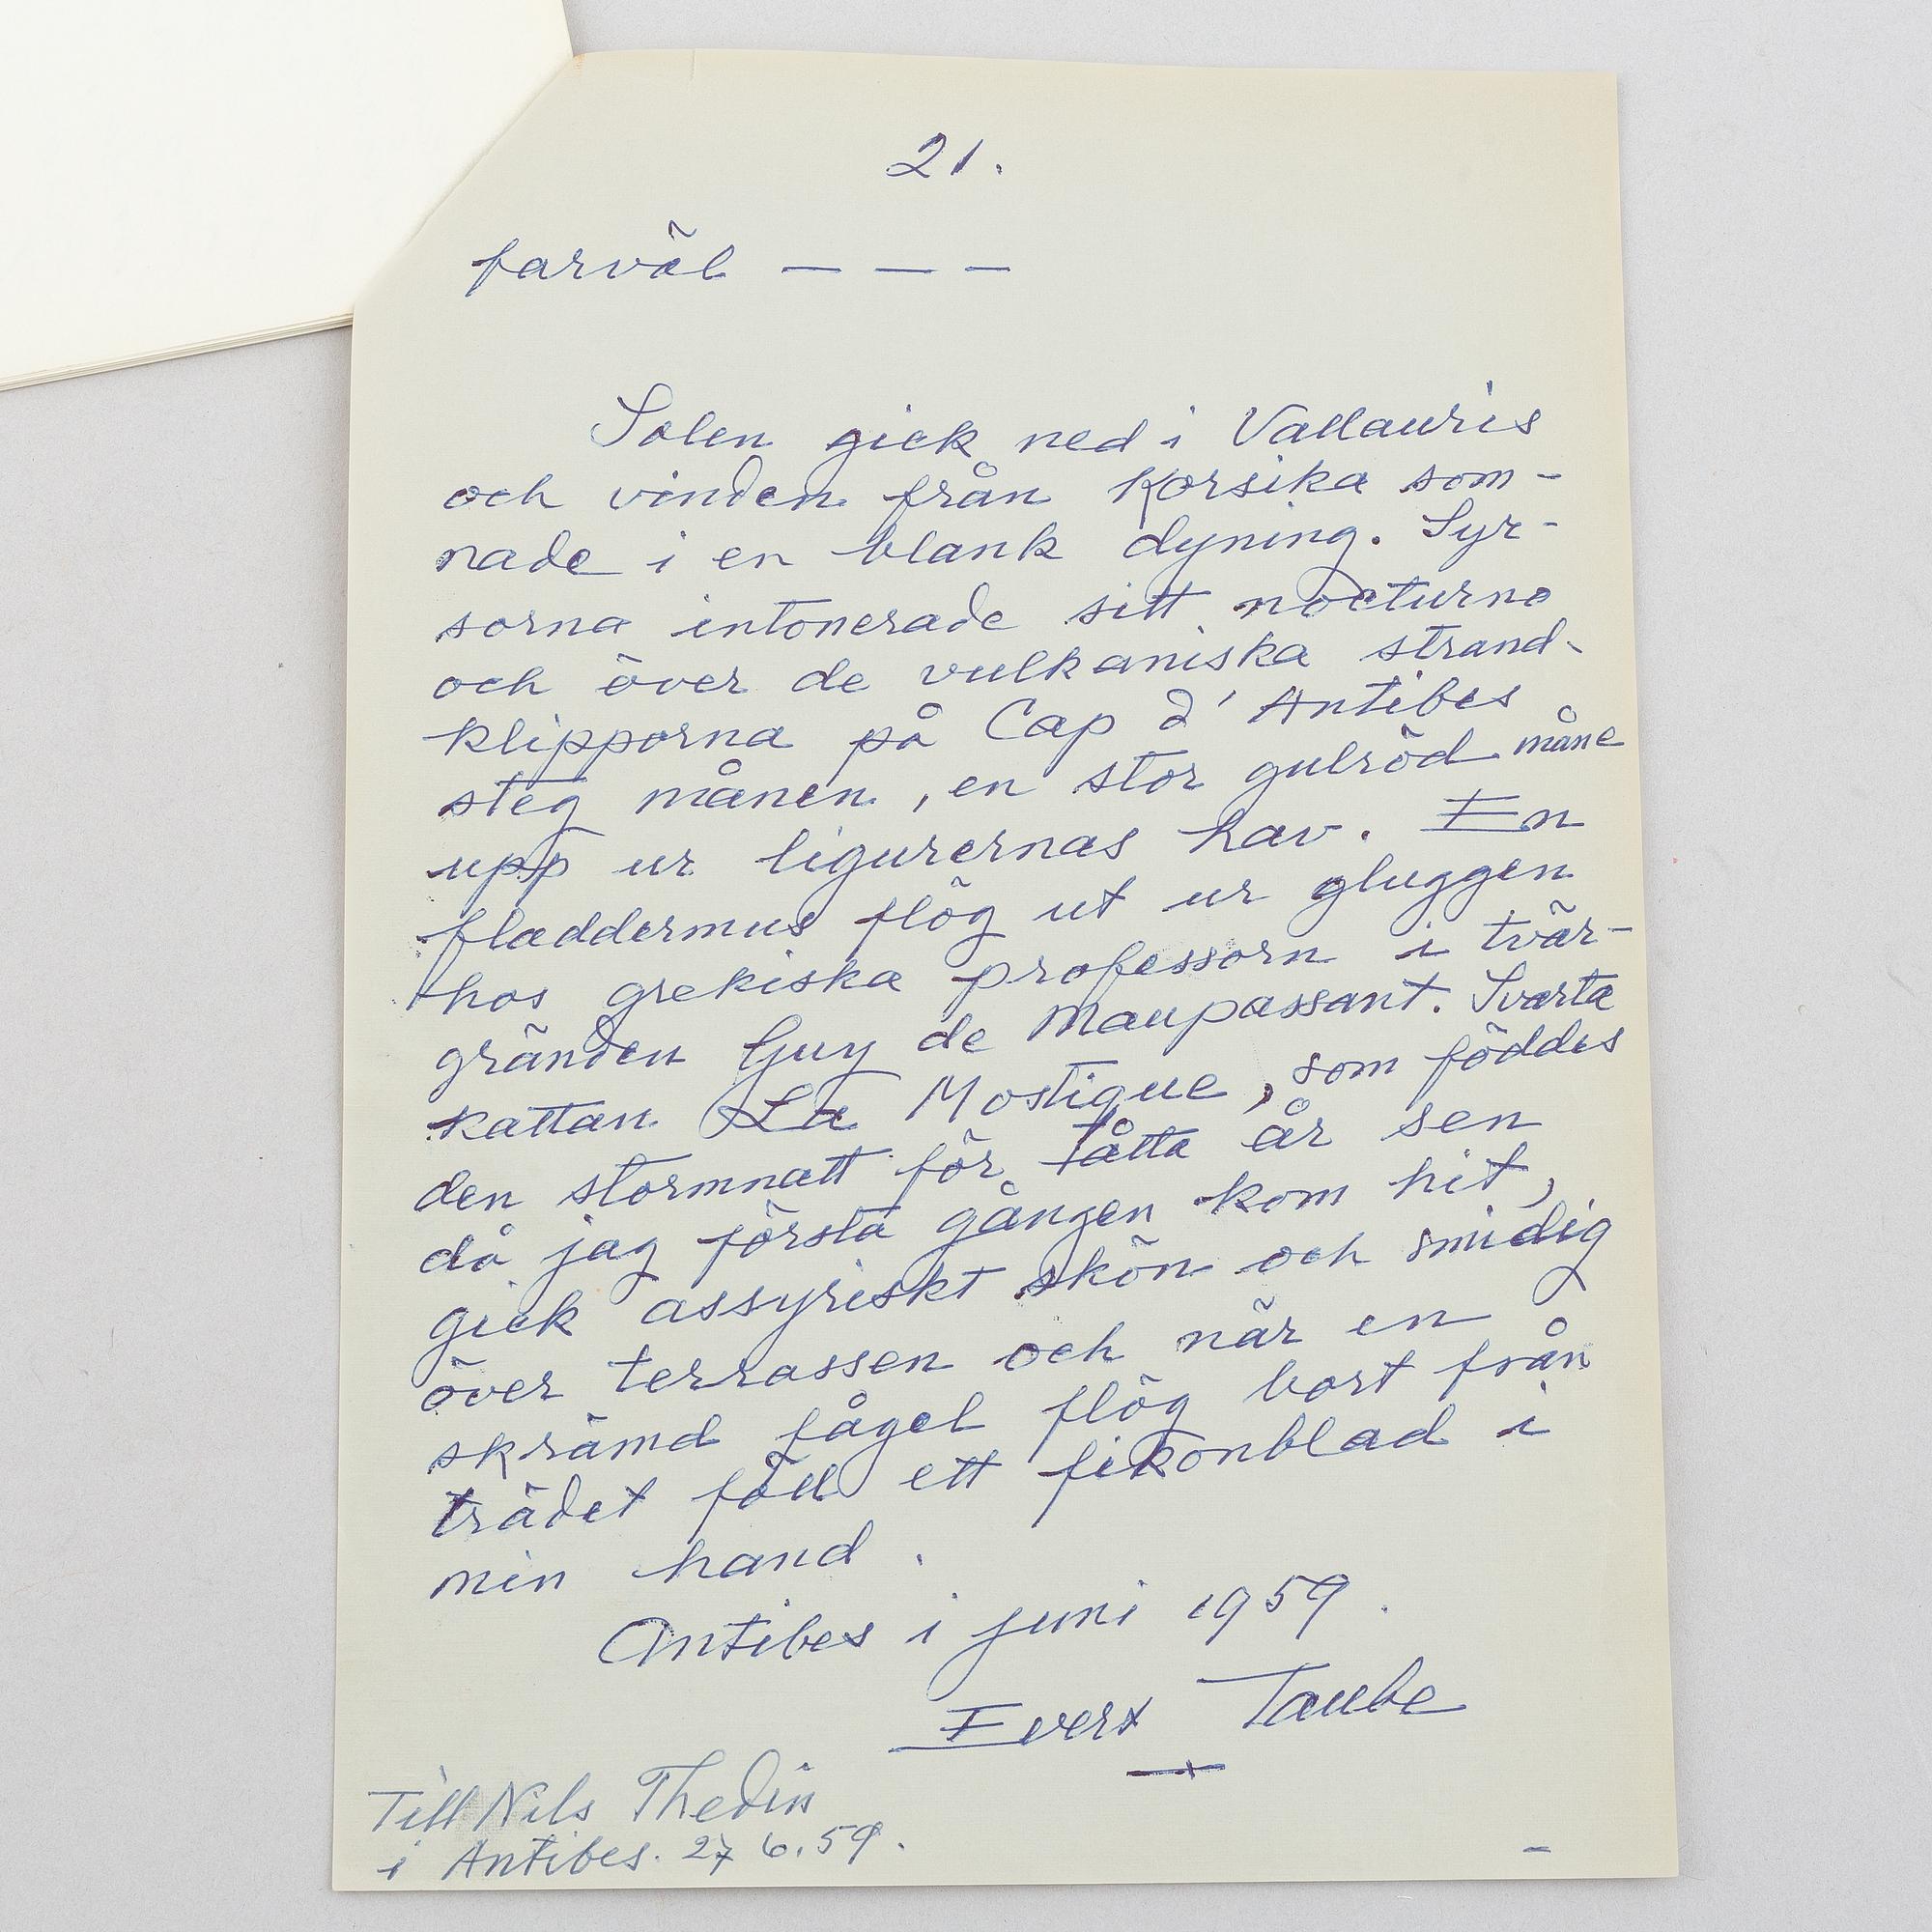 21.
farväl — — —
Solen gick ned i Vallauris
och vinden från Korsika som-
nade i en blank dyning. Syr-
sorna intonerade sitt nocturno
och över de vulkaniska strand-
klipporna på Cap d'Antibes
steg månen, en stor gulröd måne
upp ur ligurernas hav. En
fladdermus flög ut ur gluggen
hos grekiska professorn i tvär-
gränden Guy de Maupassant. Svarta
kattan La Mostique, som föddes
den stormnatt för åtta år sen
då jag första gången kom hit,
gick assyriskt skön och smidig
över terrassen och när en
skrämd fågel flög bort från
trädet föll ett fikonblad i
min hand.
Antibes i juni 1959.
Evert Taube
Till Nils Thedin
i Antibes. 27 6.59.